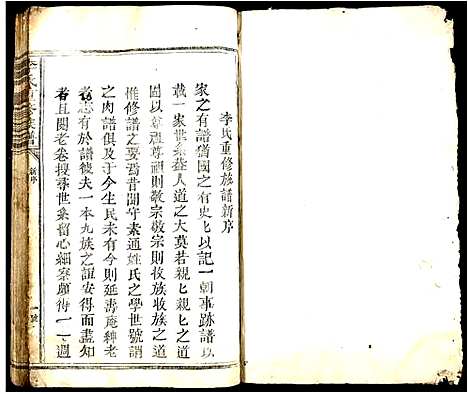 李氏重修族譜新序
家之有譜猶國之有史匕以記一朝事跡譜以
載一家世系蓋人道之大莫若親匕親匕之道
固以尊祖尊祖則敬宗敬宗則收族收族之道
惟修譜之要焉昔聞守素通姓氏之學世號謂
之肉譜俱及于今生民未有今則延壽庵紳老
者志有於譜後夫一本九族之誼安得而盡知
者且閱老卷搜尋世系留心細察頗待一二週
新序
一號